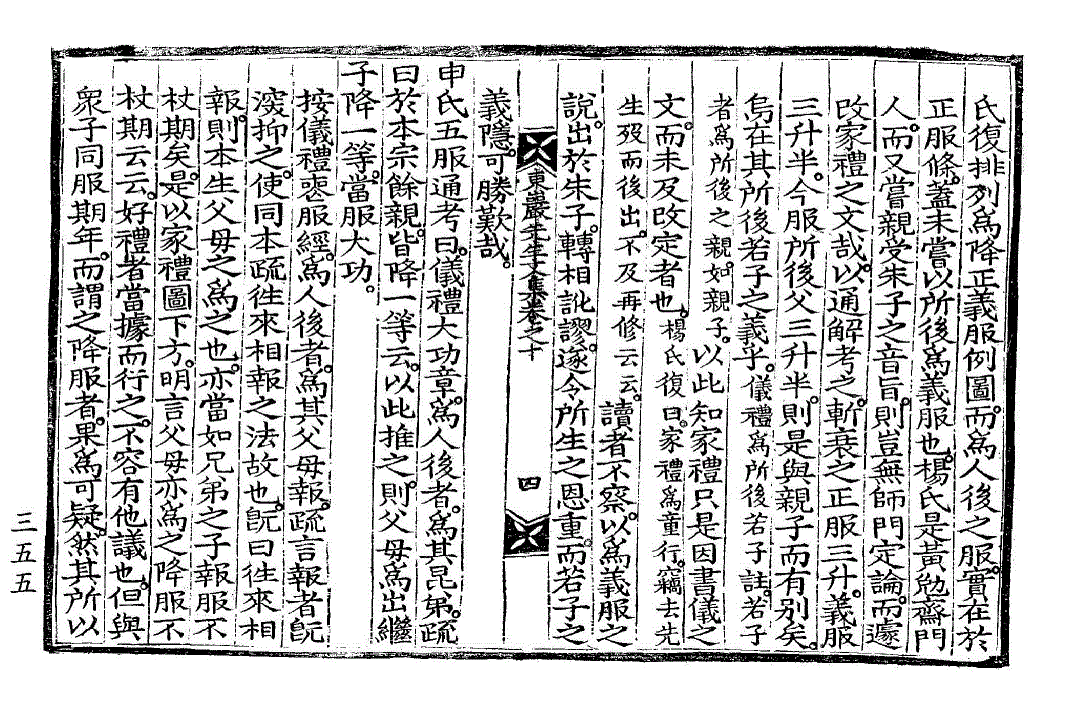 氏復排列爲降正義服例圖而爲人後之服實在於
正服條蓋未嘗以所後爲義服也楊氏是黃勉齋門
人而又嘗親受朱子之音旨則豈無師門定論而遽
改家禮之文哉以通解考之斬衰之正服三升義服
三升半今服所後父三升半則是與親子而有別矣
烏在其所後若子之義乎儀禮爲所後若子註若子
者爲所後之親如親子以此知家禮只是因書儀之
文而未及改定者也楊氏復曰家禮爲童行竊去先
生歿而後出不及再修云云讀者不察以爲義服之
說出於朱子轉相訛謬遂令所生之恩重而若子之
東巖先生文集卷之十
四
義隱可勝歎哉
申氏五服通考曰儀禮大功章爲人後者爲其昆弟疏
曰於本宗餘親皆降一等云以此推之則父母爲出繼
子降一等當服大功
按儀禮喪服經爲人後者爲其父母報疏言報者旣
深抑之使同本疏往來相報之法故也旣曰往來相
報則本生父母之爲之也亦當如兄弟之子報服不
杖期矣是以家禮圖下方明言父母亦爲之降服不
杖期云云好禮者當據而行之不容有他議也但與
衆子同服期年而謂之降服者果爲可疑然其所以
三五五